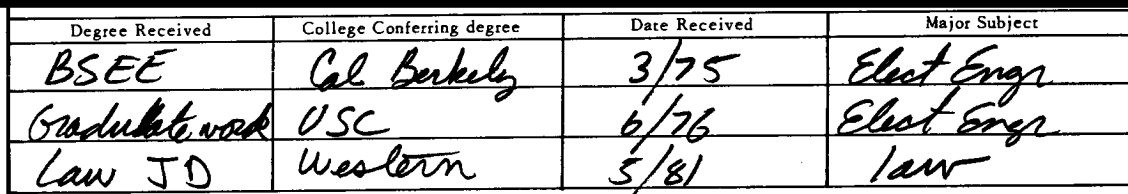 Degree Received College Conferring degree Date Received Major Subject
BSEE Cal Berkely 3/75 Elect Engr
Graduate work USC 6/76 Elect Engr
Law JD Western 5/81 law